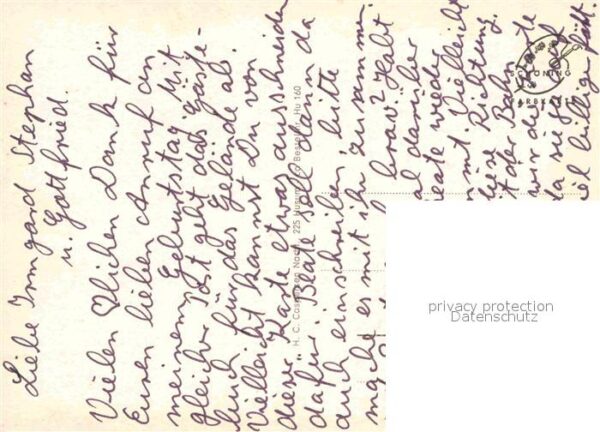 Liebe Irmgard Stephan
u. Gottfried.
Vielen ♡lichen Dank für
Euren lieben Anruf an
meinem Geburtstag. Mit
gleicher Post geht das Gäste-
buch für das Gelände ab.
Vielleicht kannst Du von
dieser Karte etwas ausschneiden
dafür. Beate soll dann da
auch einschreiben, bitte
mache es mit ihr zusammen.
brav? Habt
mal darüber
Beate wieder
mt. Vielleicht
diese Richtung.
mit der Bahn
wor der
da sie ja
viel billiger fährt.
H. C. Nachf. 225 Husum Best.Nr. Hu 160
SCHÖNING
FARBKARTE
privacy protection
Datenschutz